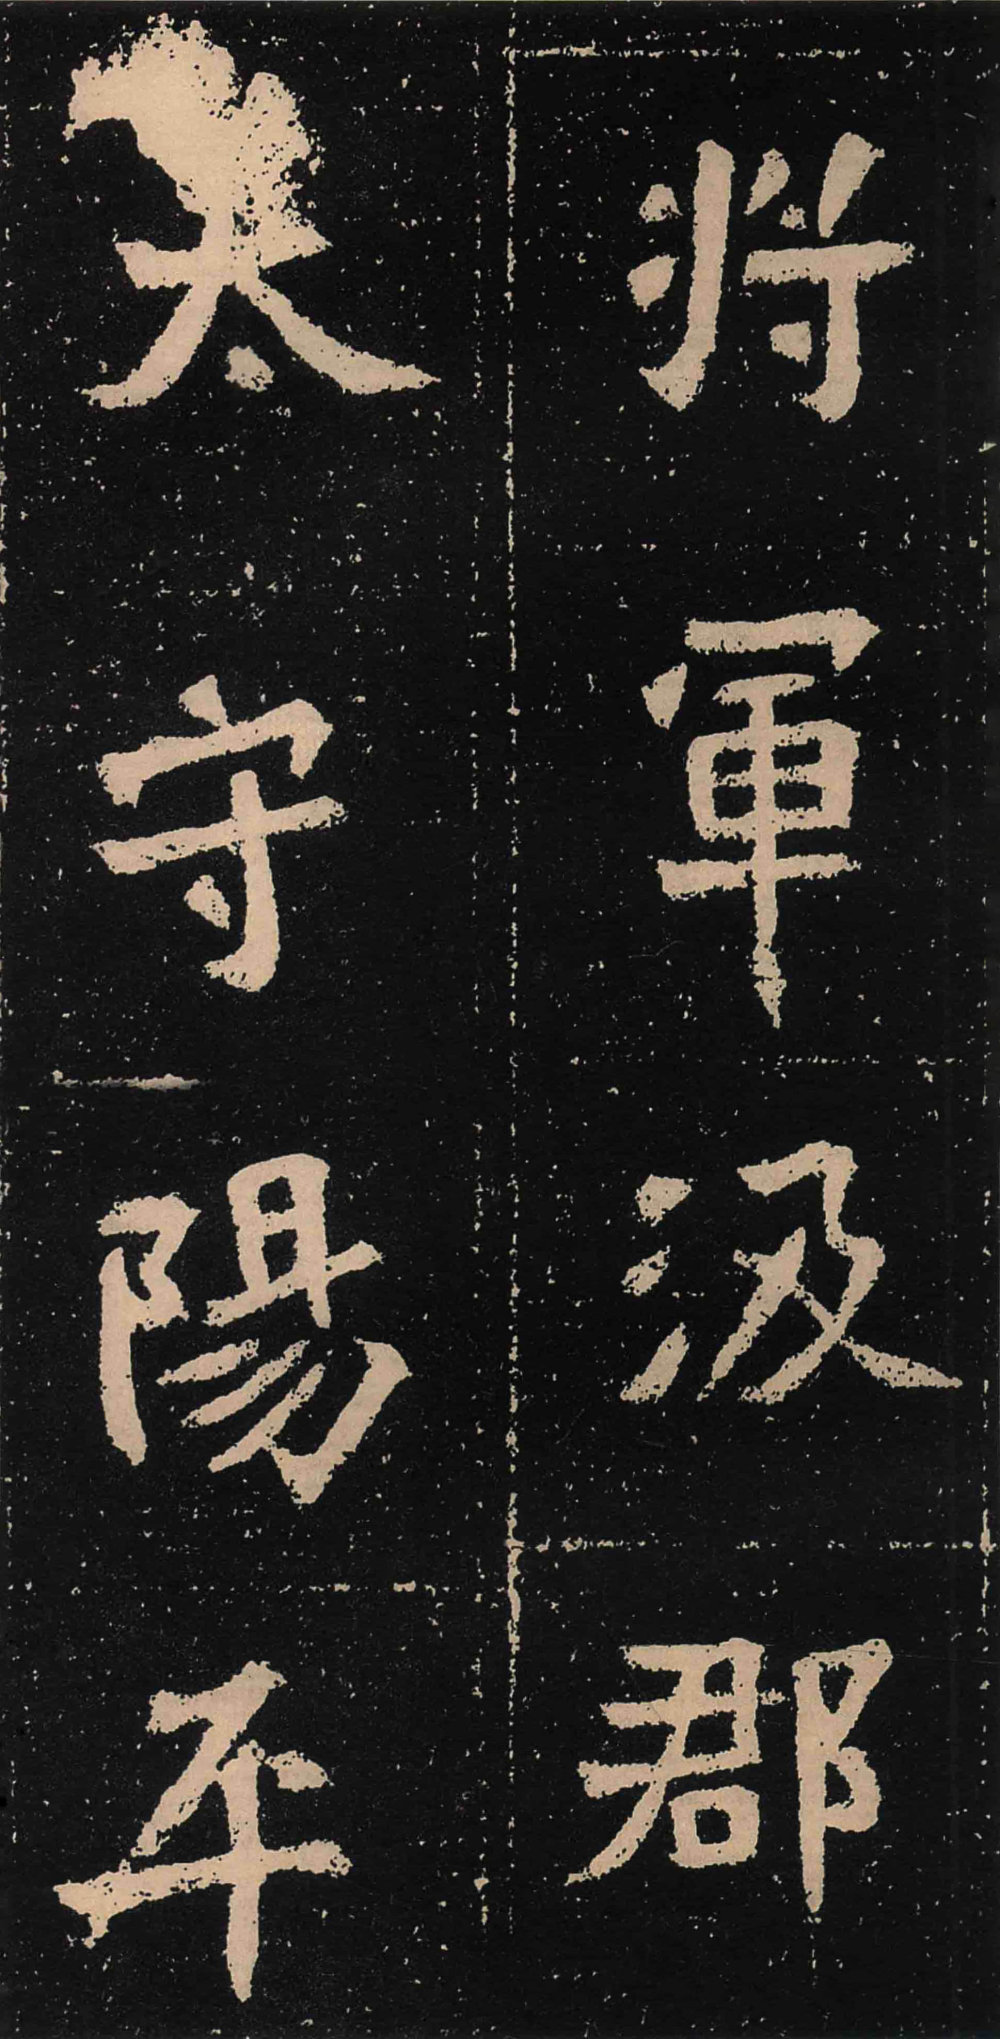 將軍汲郡
太守陽平